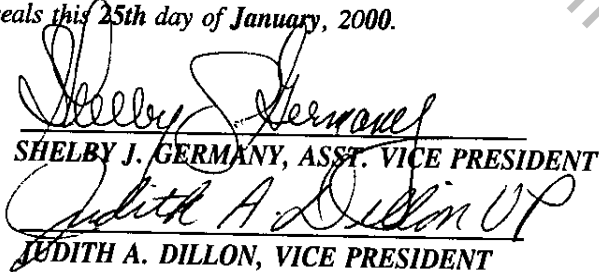 eals this 25th day of January, 2000.
Shelby J Germany
SHELBY J. GERMANY, ASST. VICE PRESIDENT
Judith A. Dillon VP
JUDITH A. DILLON, VICE PRESIDENT